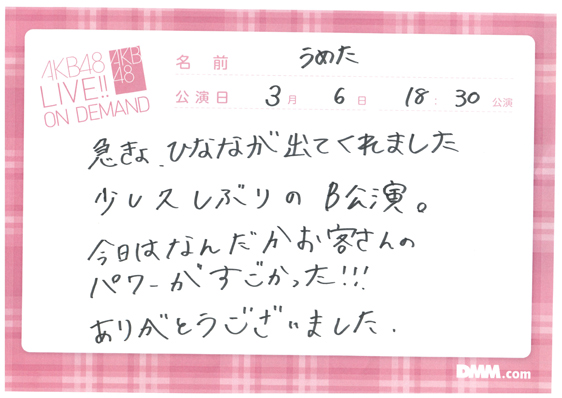 AKB48
LIVE!!
ON DEMAND
AKB
48
名 前 うめた
公演日 3月 6日 18:30公演
急きょ、ひななが出てくれました
少し久しぶりのB公演。
今日はなんだかお客さんの
パワーがすごかった!!!
ありがとうございました.
DMM.com